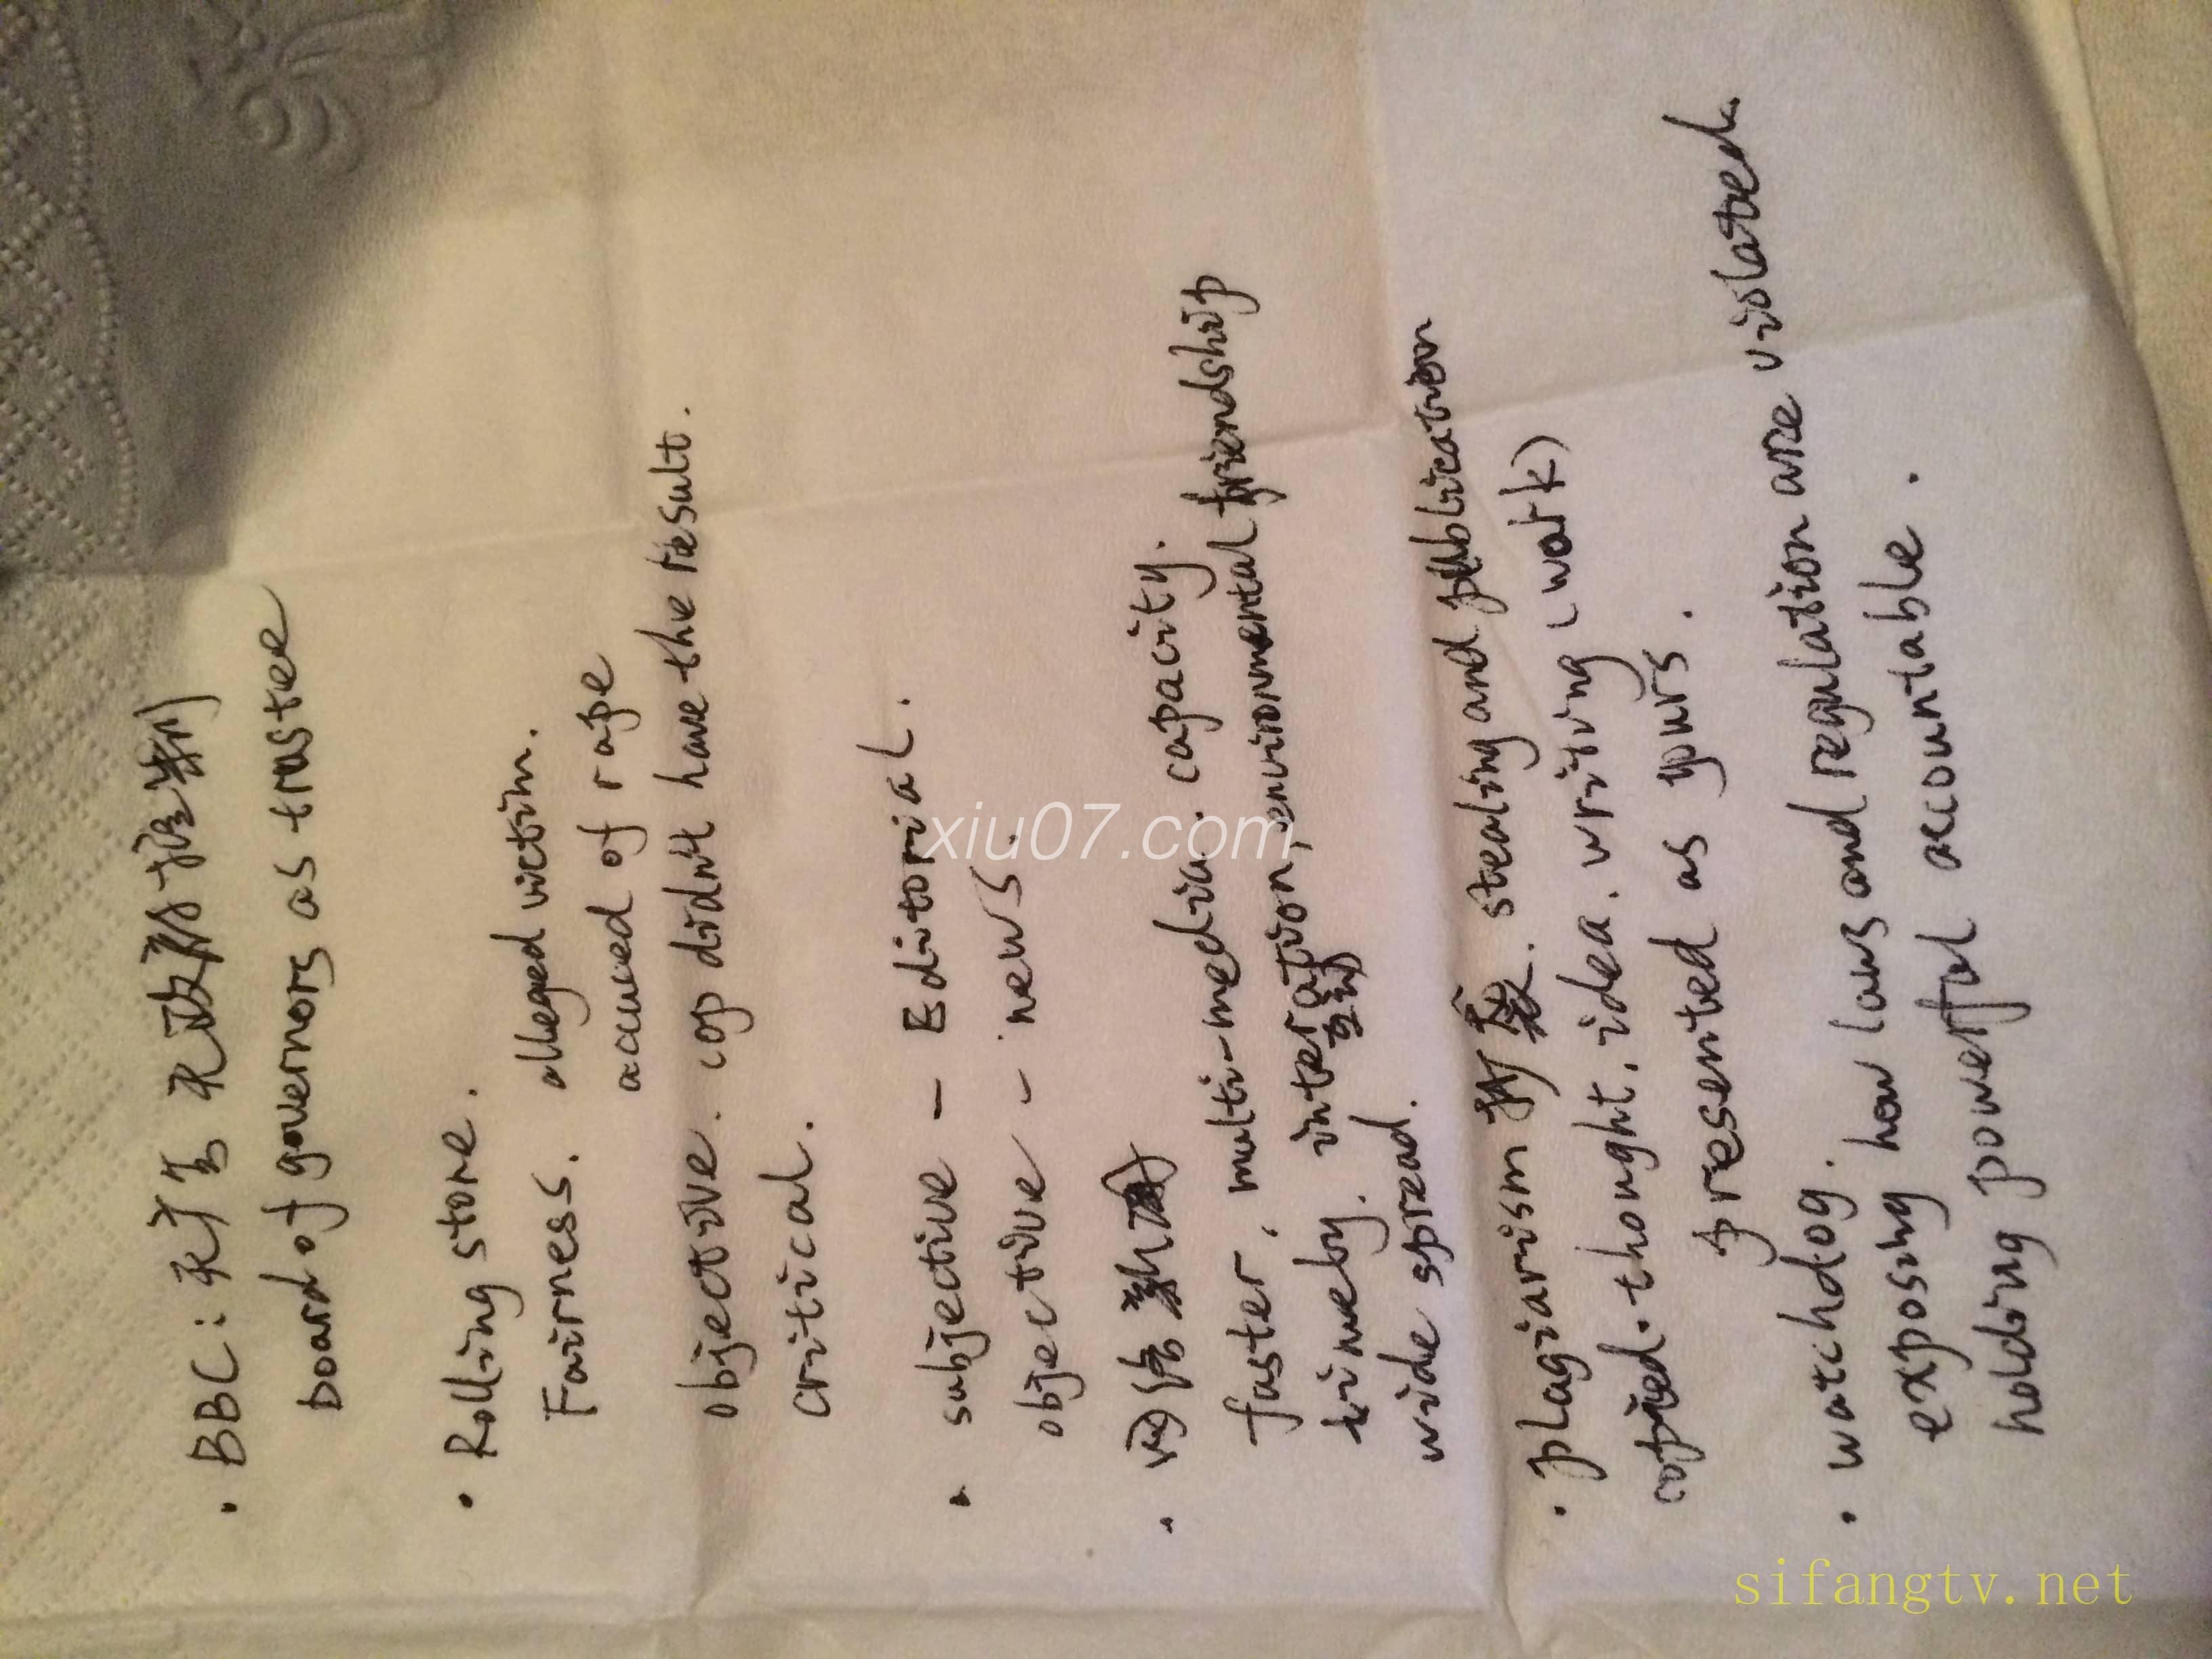 · BBC: 无广告 无政府控制
board of governors as trustee
· Rolling stone.
Fairness. alleged victim.
accused of rape
objective. cop didn't have the result.
critical.
· subjective - Editorial.
objective - news.
· 网络新闻
faster, multi-media. capacity.
timely. interaction, environmental friendship
互动
wide spread.
· plagiarism 抄袭. stealing and publication
copied. thought, idea, writing (work)
presented as yours.
· watchdog.
exposing how laws and regulation are violated
holding powerful accountable.
xiu07.com
sifangtv.net